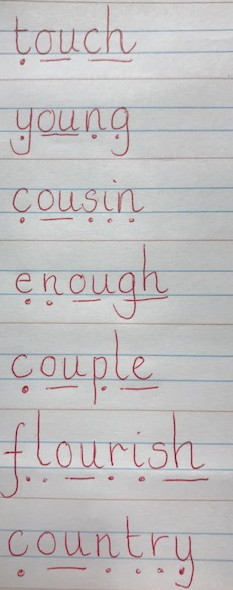 touch
young
cousin
enough
couple
flourish
country